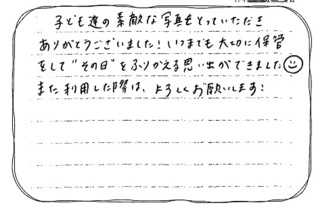 子ども達の素敵な写真をとっていただき
ありがとうございました!いつまでも大切に保管
をして"その日"をふりかえる思い出ができました☺
また利用した際は、よろしくお願いします!